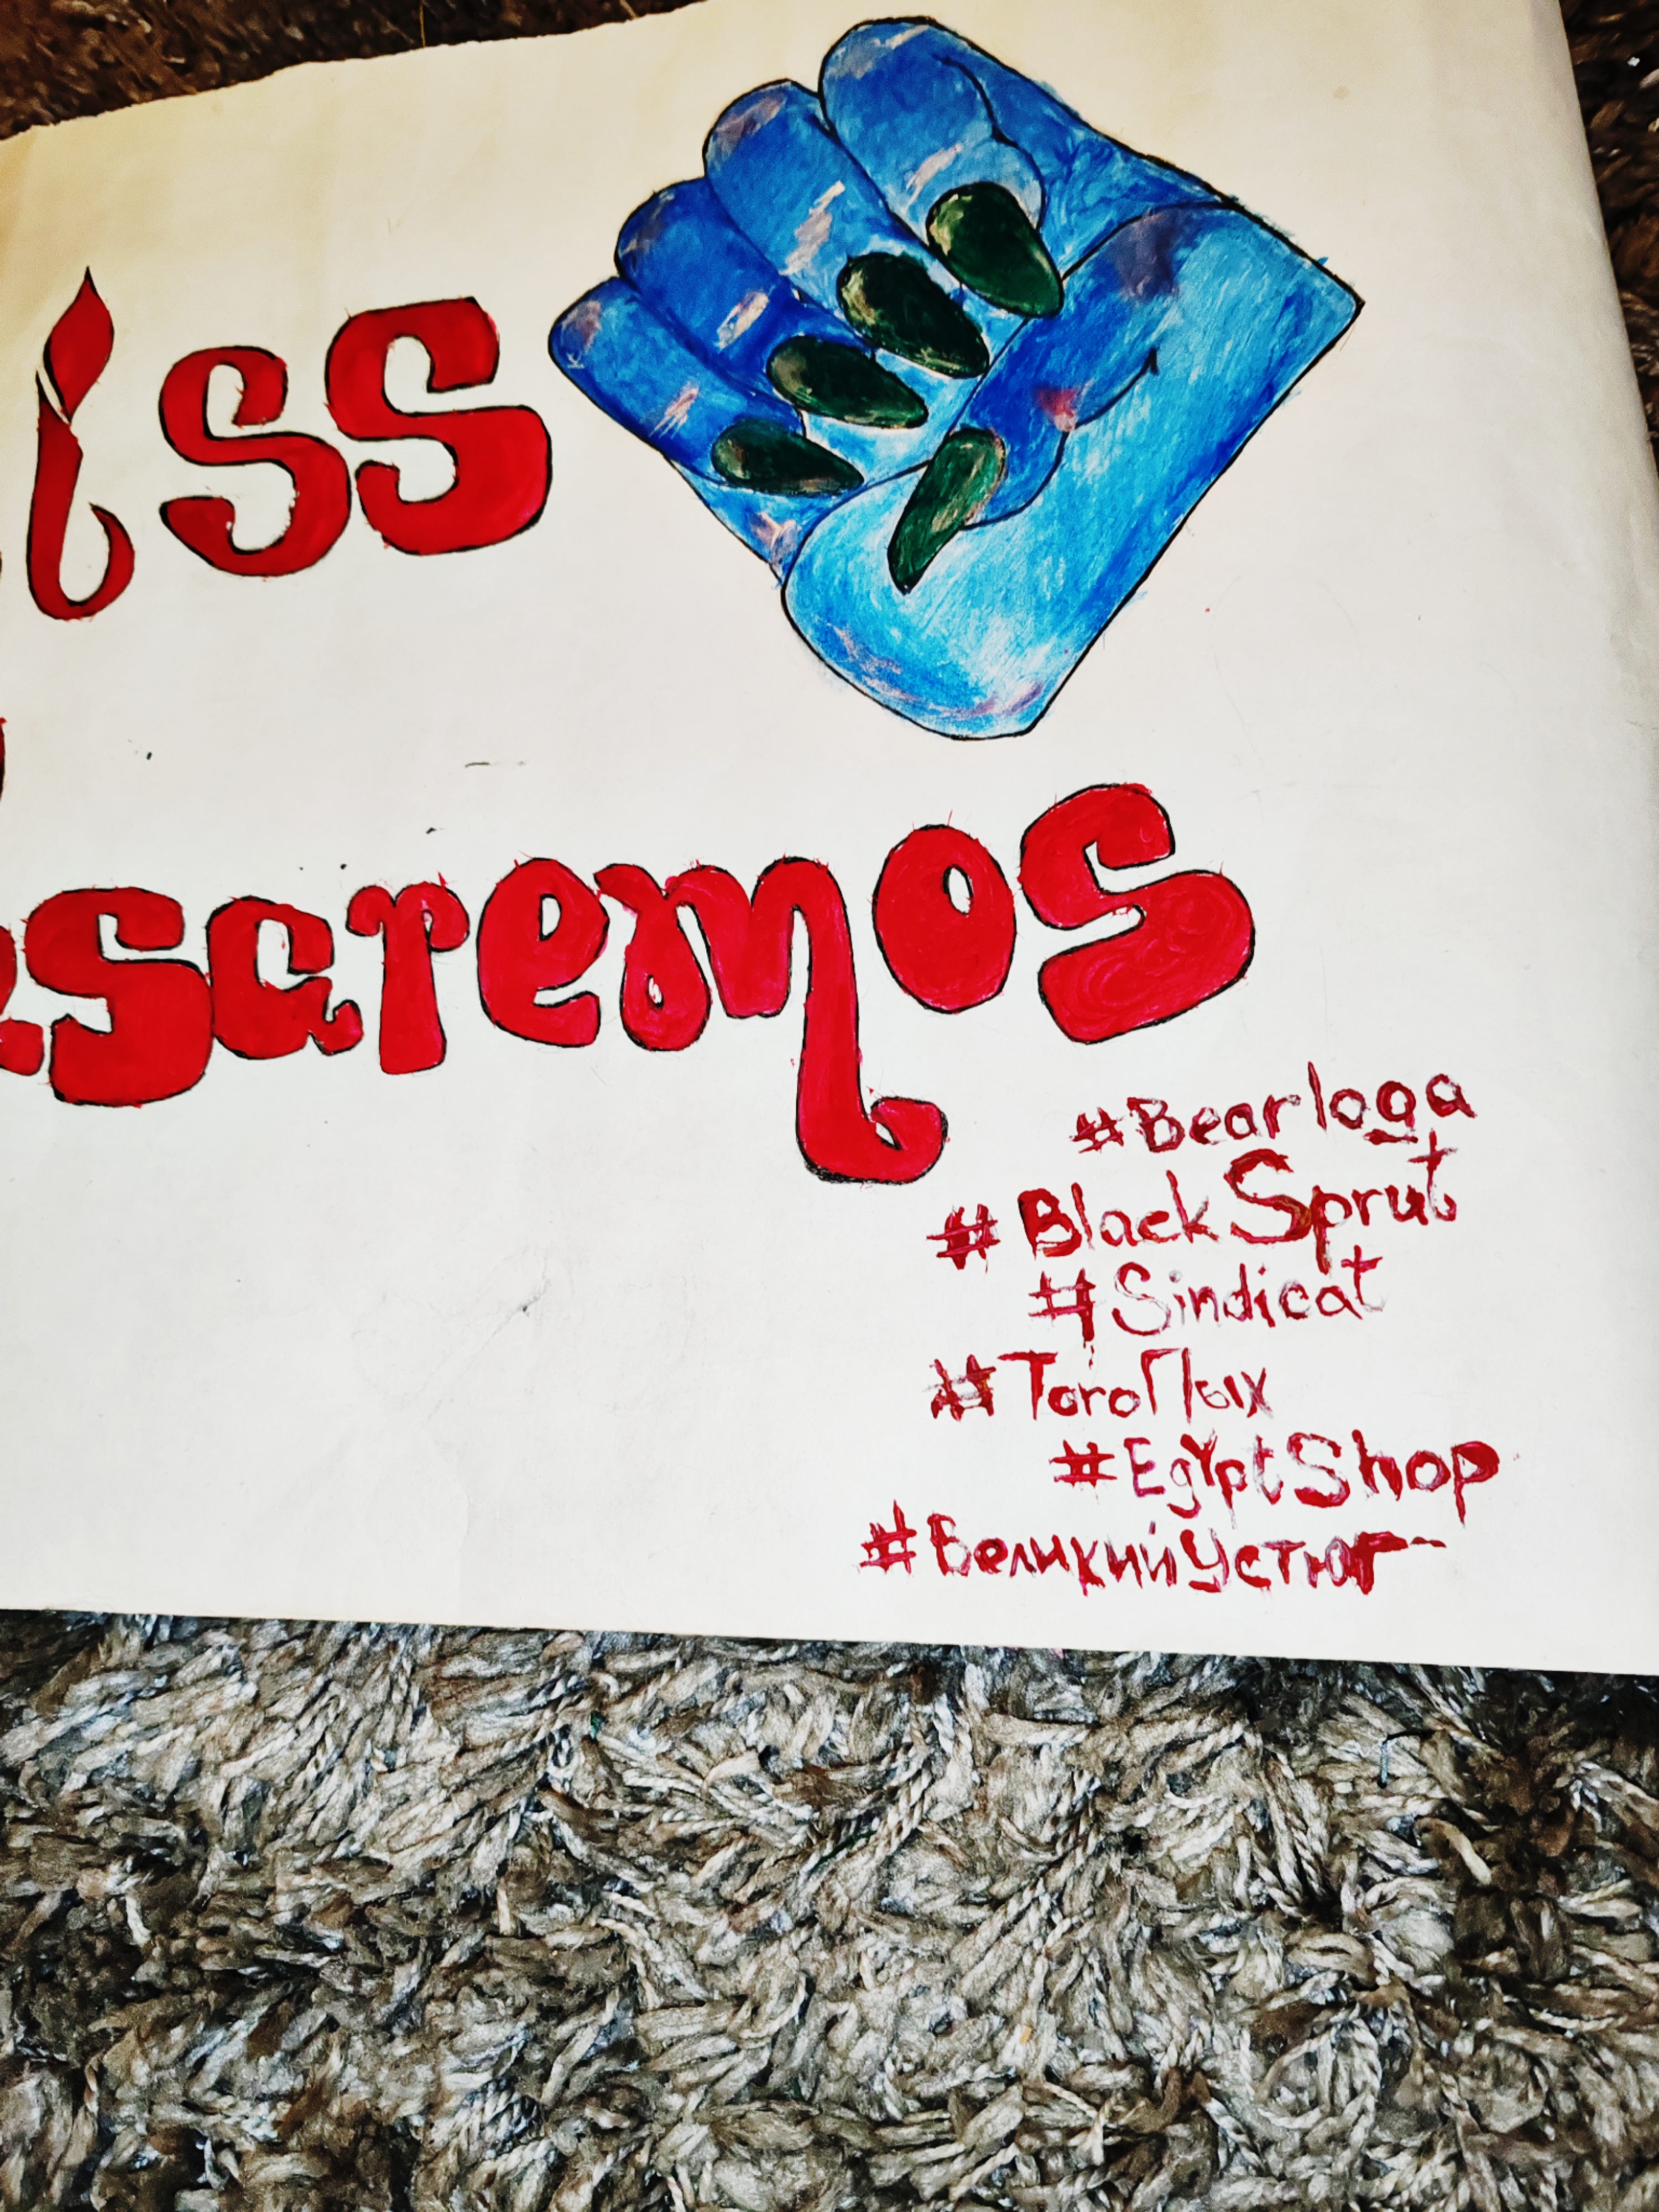 iss
saremos
#Bearloga
#BlackSprut
#Sindicat
#ТогоПых
#EgYptShop
#ВеликийУстюг